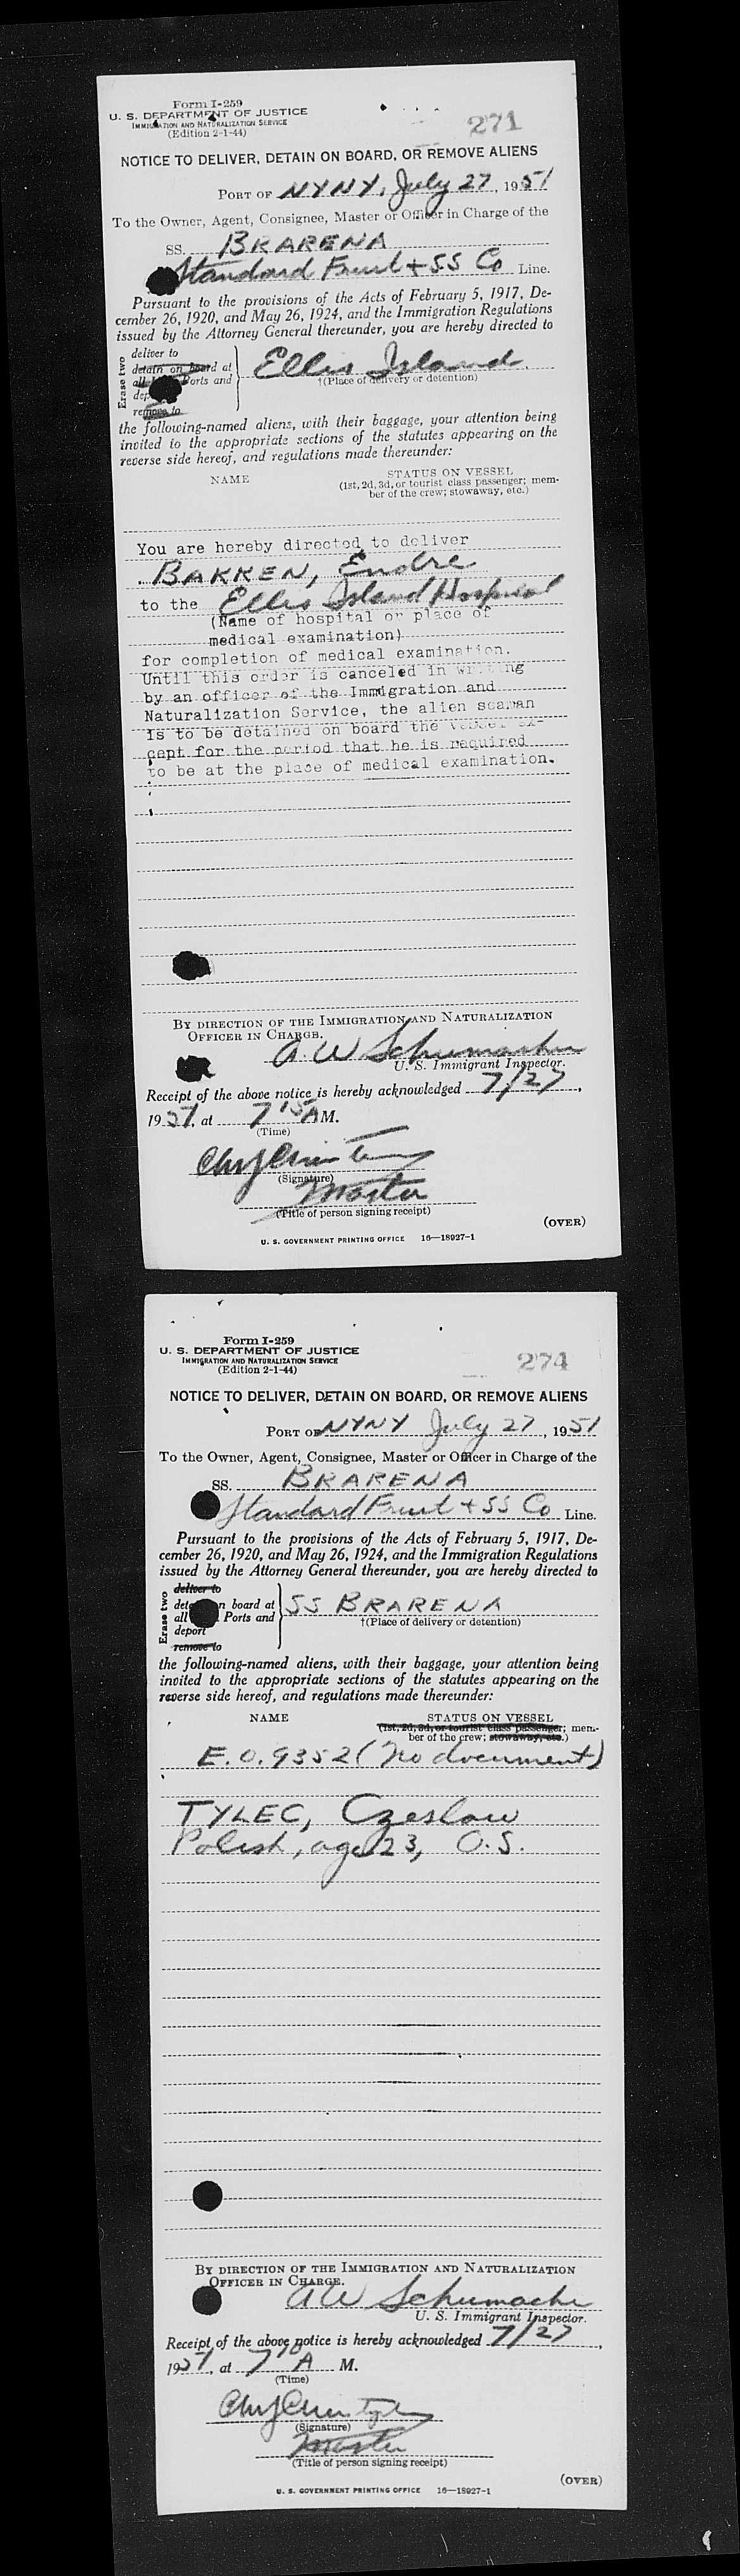 Form I-259
U. S. DEPARTMENT OF JUSTICE
IMMIGRATION AND NATURALIZATION SERVICE
(Edition 2-1-44)
271
NOTICE TO DELIVER, DETAIN ON BOARD, OR REMOVE ALIENS
PORT OF NYNY, July 27, 1951
To the Owner, Agent, Consignee, Master or Officer in Charge of the
SS. BRARENA
Standard Fruit + SS Co Line.
Pursuant to the provisions of the Acts of February 5, 1917, De-
cember 26, 1920, and May 26, 1924, and the Immigration Regulations
issued by the Attorney General thereunder, you are hereby directed to
Erase two
deliver to
detain on board at
all Ports and
remove to
Ellis Island
†(Place of delivery or detention)
the following-named aliens, with their baggage, your attention being
invited to the appropriate sections of the statutes appearing on the
reverse side hereof, and regulations made thereunder:
NAME STATUS ON VESSEL
(1st, 2d, 3d, or tourist class passenger; mem-
ber of the crew; stowaway, etc.)
You are hereby directed to deliver
BAKKEN, Endre
to the Ellis Island Hospital
(Name of hospital or place of
medical examination)
for completion of medical examination.
Until this order is canceled in writing
by an officer of the Immigration and
Naturalization Service, the alien seaman
is to be detained on board the vessel ex-
cept for the period that he is required
to be at the place of medical examination.
BY DIRECTION OF THE IMMIGRATION AND NATURALIZATION
OFFICER IN CHARGE.
A. W Schumacher
U. S. Immigrant Inspector.
Receipt of the above notice is hereby acknowledged 7/27,
1951, at 7 15 A M.
(Time)
(Signature)
Master
(Title of person signing receipt)
(OVER)
U. S. GOVERNMENT PRINTING OFFICE 16—18927-1
Form I-259
U. S. DEPARTMENT OF JUSTICE
IMMIGRATION AND NATURALIZATION SERVICE
(Edition 2-1-44)
274
NOTICE TO DELIVER, DETAIN ON BOARD, OR REMOVE ALIENS
PORT OF NYNY July 27, 1951
To the Owner, Agent, Consignee, Master or Officer in Charge of the
SS. BRARENA
Standard Fruit + SS Co Line.
Pursuant to the provisions of the Acts of February 5, 1917, De-
cember 26, 1920, and May 26, 1924, and the Immigration Regulations
issued by the Attorney General thereunder, you are hereby directed to
Erase two
deliver to
board at
all Ports and
deport
remove to
SS BRARENA
†(Place of delivery or detention)
the following-named aliens, with their baggage, your attention being
invited to the appropriate sections of the statutes appearing on the
reverse side hereof, and regulations made thereunder:
NAME STATUS ON VESSEL
(1st, 2d, 3d, or tourist class passenger; mem-
ber of the crew; stowaway, etc.)
E.O. 9352 (No document)
TYLEC, Czeslaw
Polish, age 23, O.S.
BY DIRECTION OF THE IMMIGRATION AND NATURALIZATION
OFFICER IN CHARGE.
AW Schumacher
U. S. Immigrant Inspector.
Receipt of the above notice is hereby acknowledged 7/27,
1951, at 7 10 A M.
(Time)
(Signature)
Master
(Title of person signing receipt)
(OVER)
U. S. GOVERNMENT PRINTING OFFICE 16—18927-1